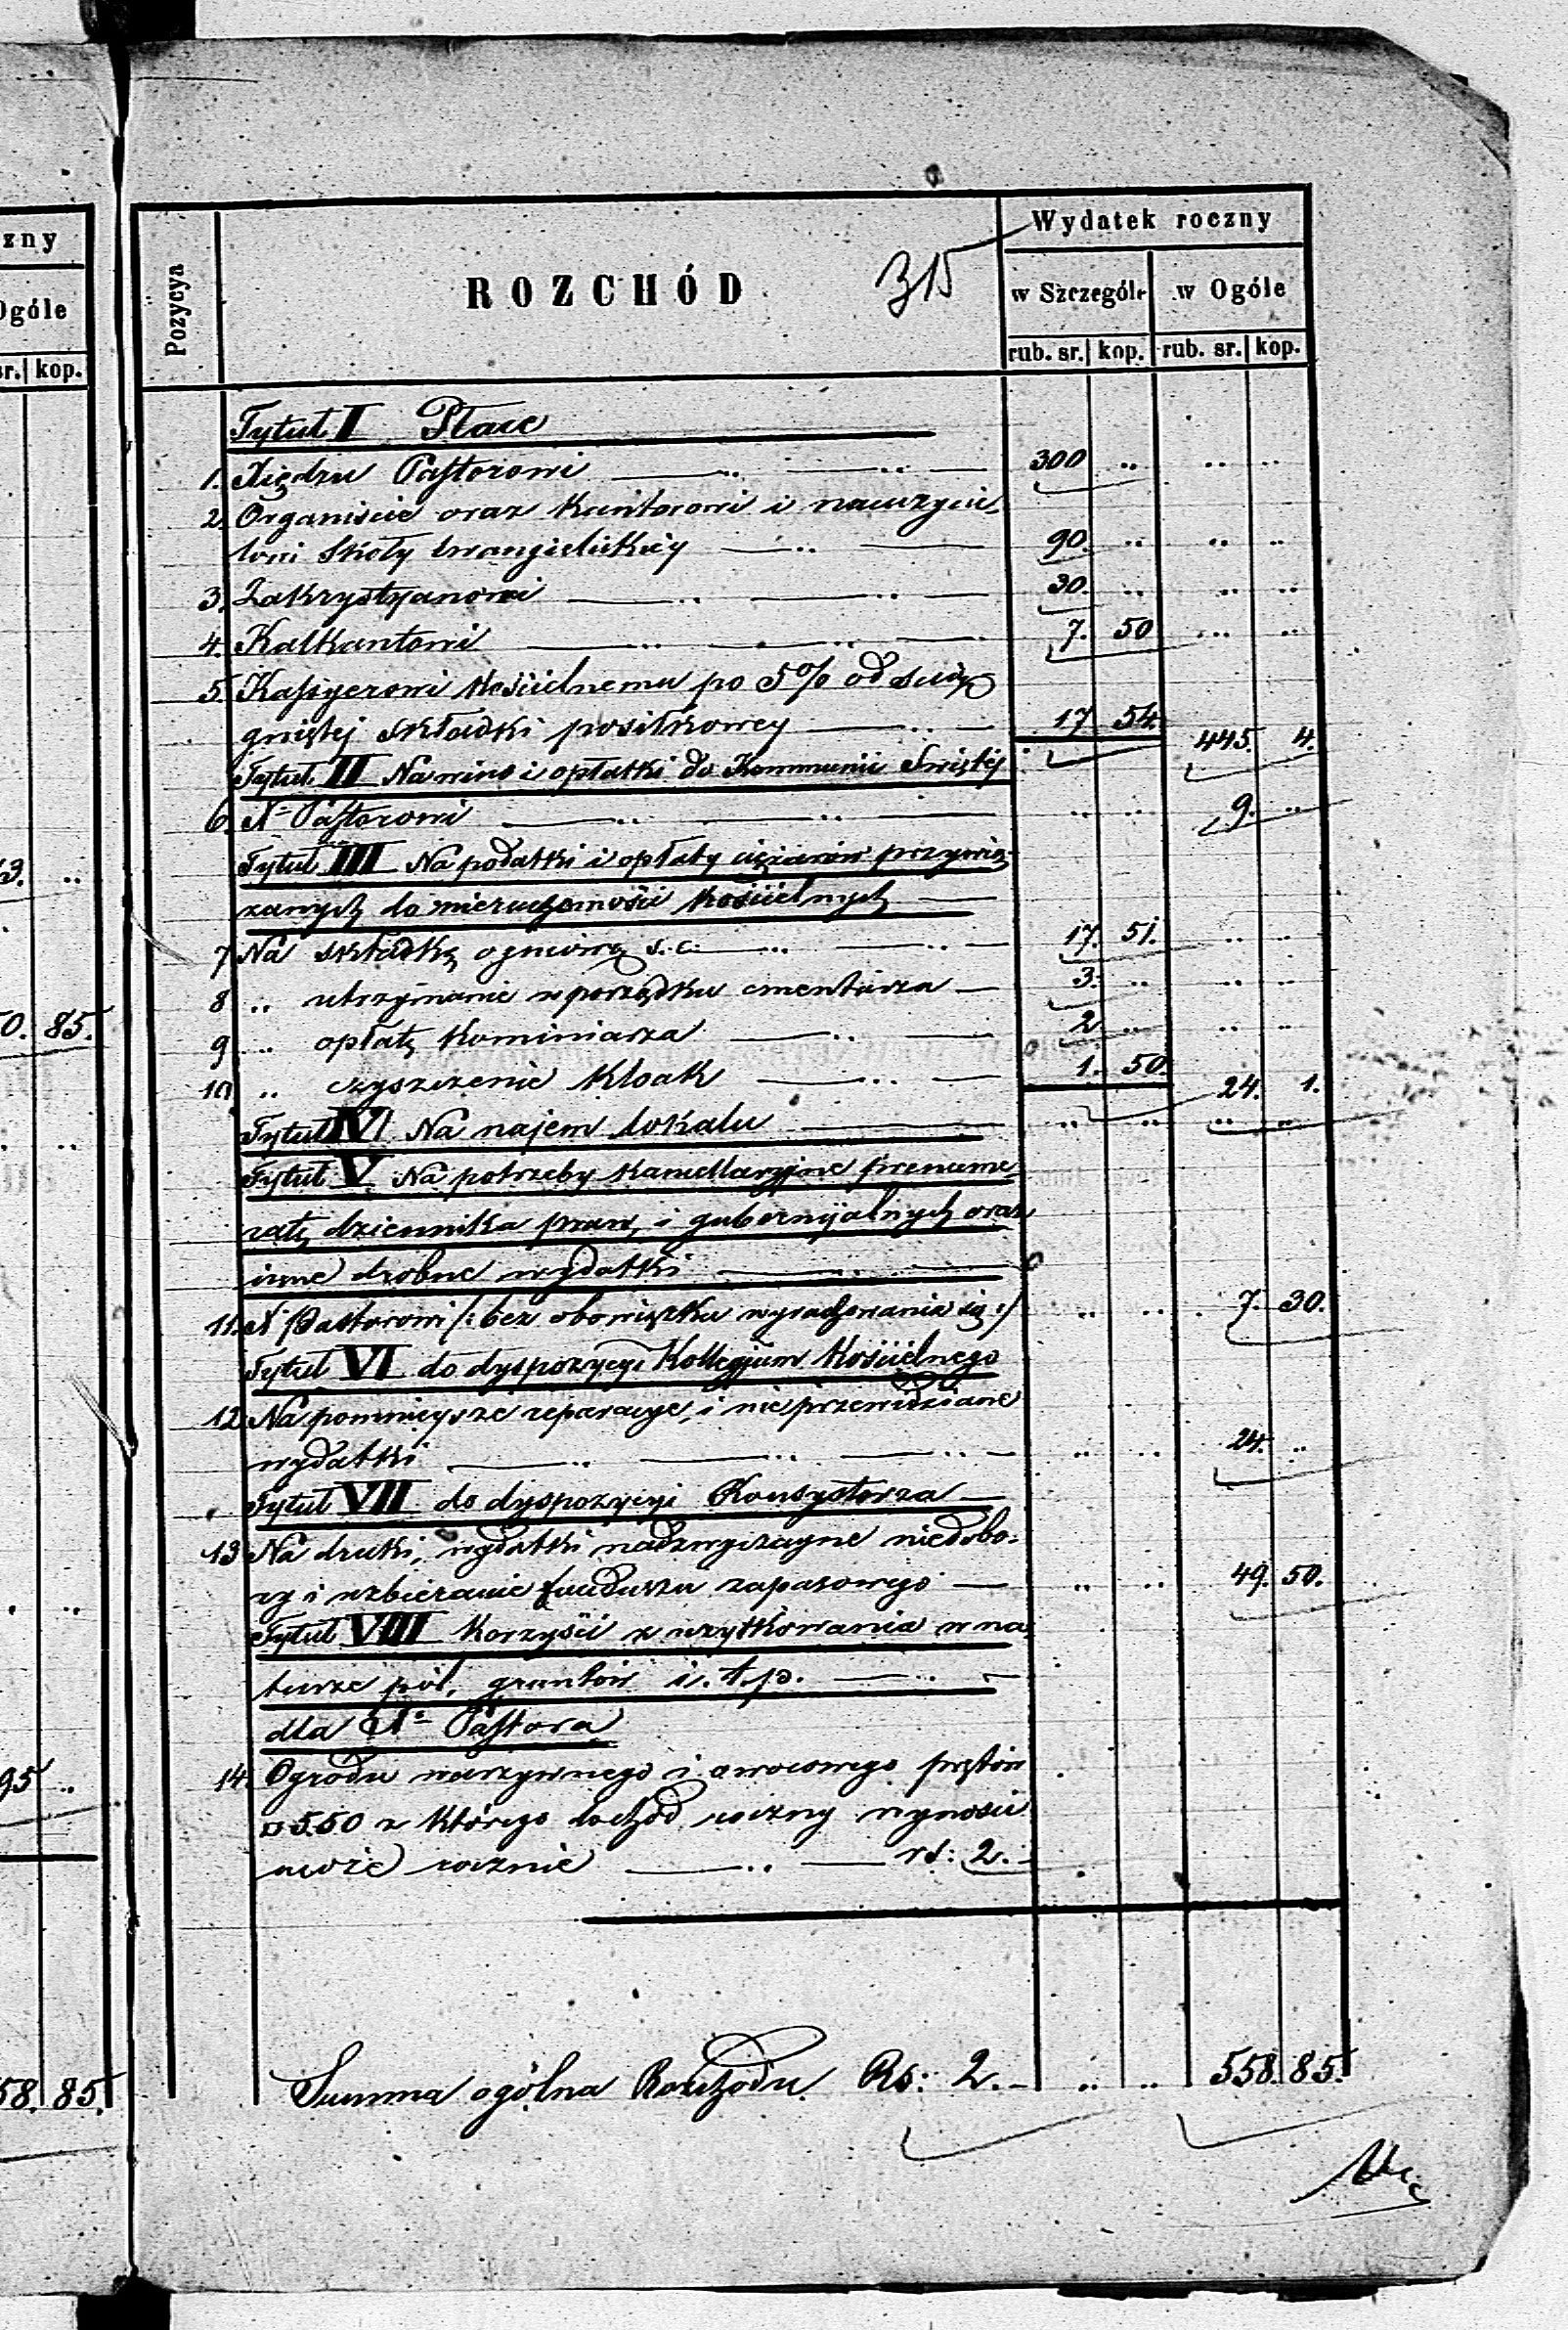 zny
Ogóle
sr. kop.
3. ..
0. 85.
. ..
. ..
95 ..
58. 85.
Pozycya
ROZCHÓD
315
Wydatek roczny
w Szczególe w Ogóle
rub. sr. kop. rub. sr. kop.
Tytuł I Płace
1. Xiędzu Pastorowi 300 .. .. ..
2. Organiście oraz Kantorowi i nauczycie
lowi Szkoły Ewangielickiéy 90. .. .. ..
3. Zakrystyanowi 30. .. .. ..
4. Kalkantowi 7. 50 .. ..
5. Kassyerowi Kościelnemu po 5% od ścią
gniętej składki posiłkowey 17 54. 445. 4.
Tytuł II Na wino i opłatki do Kommunii Świętéj
6. X. Pastorowi .. .. 9. ..
Tytuł III Na podatki i opłaty ciężarów przywią-
zanych do nieruchomości kościelnych
7 Na składkę ogniową s. c. 17. 51. .. ..
8 .. utrzymanie w porządku cmentarza 3. .. .. ..
9 .. opłatę Kominiarza 2 .. .. ..
10 .. czyszczenie Kloak 1. 50. 24. 1.
Tytuł IV Na najem Lokalu .. .. .. ..
Tytuł V Na potrzeby kancellaryjne prenume
ratę dziennika praw, i gubernijalnych oraz
inne drobne wydatki
11. X. Pastorowi /: bez obowiązku wyrachowania się :/ .. .. 7. 30.
Tytuł VI do dyspozycyi Kollegjum Kościelnego
12. Na pomniejsze reparacye, i nieprzewidziane
wydatki .. .. 24. ..
Tytuł VII do dyspozycyi Konsystorza
13 Na druki, wydatki nadzwyczayne niedobo-
ry i uzbieranie funduszu zapasowego .. .. 49. 50.
Tytuł VIII Korzyści z użytkowania w na
turze pól, gruntów i. t. p.
dla X. Pastora
14. Ogrodu warzywnego i owocowego prętów
□ 550 z którego dochód roczny wynosić
może rocznie rs: 2.
Summa ogólna Rozchodu Rs: 2.- .. .. 558. 85.